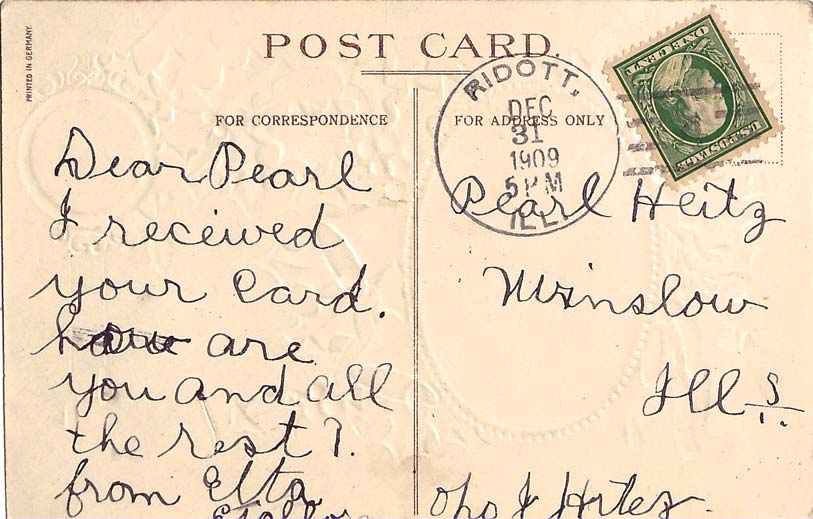 PRINTED IN GERMANY.
POST CARD.
FOR CORRESPONDENCE
FOR ADDRESS ONLY
RIDOTT.
DEC
31
1909
5 PM
ILL.
U.S. POSTAGE
ONE CENT
Dear Pearl
I received
your card.
how are
you and all
the rest?.
from Elta
Pearl Heitz
Winslow
Ills.